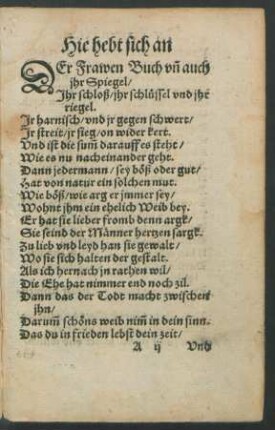 Hie hebt sich an
DEr Frawen Buch vn̄ auch
jhr Spiegel/
Jhr schloß/jhr schlüssel vnd jhr
riegel.
Jr harnisch/vnd jr gegen schwert/
Jr streit/jr sieg/on wider kert.
Vnd ist die sum̄ darauff es steht/
Wie es nu nacheinander geht.
Dann jederman̄/sey böß oder gut/
Hat von natur ein solchen mut.
Wie böß/wie arg er jmmer sey/
Wohnt jhm ein ehelich Weib bey.
Er hat sie lieber fromb denn argk/
Sie seind der Männer hertzen sargk.
Zu lieb vnd leyd han sie gewalt/
Wo sie sich halten der gestalt.
Als ich hernach jn rathen wil/
Die Ehe hat nimmer end noch zil.
Dann das der Todt macht zwischen
jhn/
Darum̄ schöns weib nim̄ in dein sinn.
Das du in frieden lebst dein zeit/
A ij Vnd